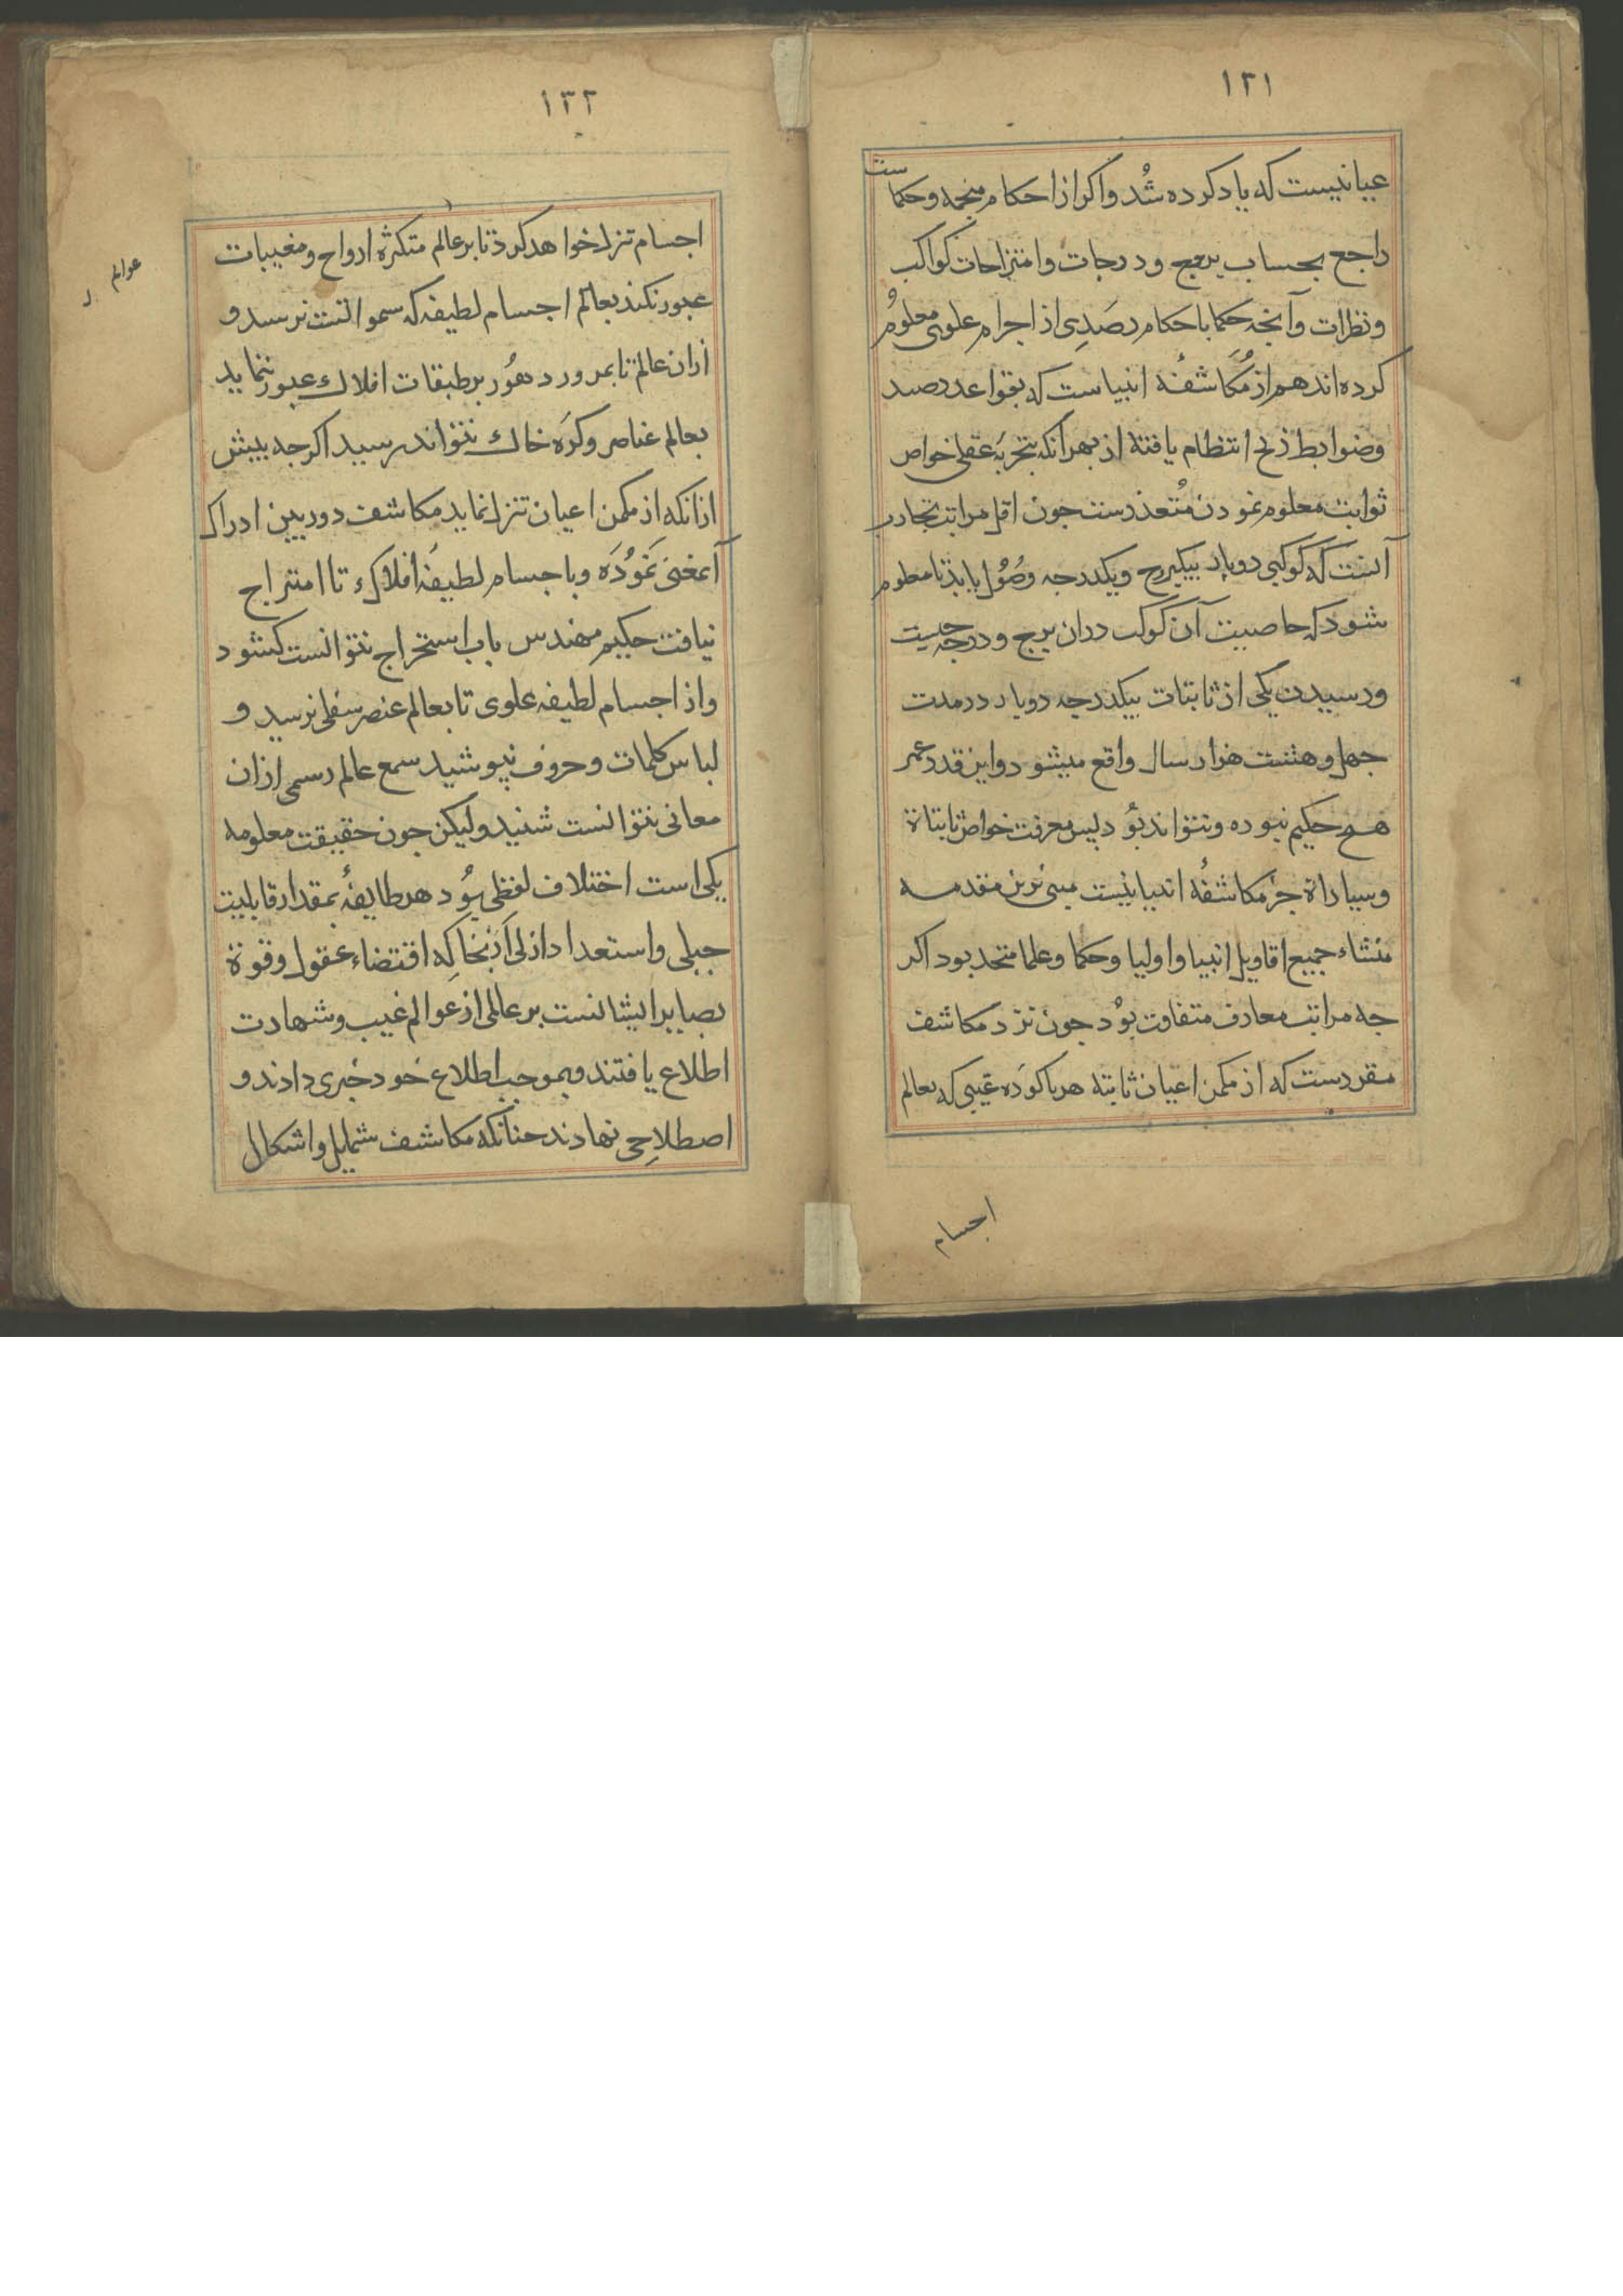 ۱۳۱
عیانیست که یاد کرده شُد واکر از احکام منجمه وحکماست
راجع بحساب بروج ودرجات وامتزاجات کواکب
ونظرات وآنجه حکما باحکام رصَدِی از اجرام علوی معلوُم
کرده اند هم از مُکاشفهٔ انبیاست که بقواعد رصد
وضوابط زیج انتظام یافته از بهر آنکه بتجربهٔ عقلی خواص
ثوابت معلوم نمودن مُتعذرست جون اقل مراتب تجارب
آنست که کوکبی دوبار بیکبرج ویکدرجه وصُول یابد تا معلوم
شود که خاصیت آن کوکب دران برج ودرجه جیست
ورسیدن یکی از ثابتات بیکدرجه دوبار در مدت
جهل وهشت هزار سال واقع میشود واین قدر عمر
هیج حکیم نبوده ونتواند بوُد بس معرفت خواص ثابتاة
وسیاراة جز مکاشفهٔ انبیا نیست مبنی برین مقدمه
منشاء جمیع اقاویل انبیا واولیا وحکما وعلما متحد بود اکر
جه مراتب معارف متفاوت بوُد جون نزد مکاشف
مقررست که از مکمن اعیان ثابته هر باکورَه غیبی که بعالم
اجسام
۱۳۲
اجسام تنزل خواهد کرد تا بر عالم متکثرهٔ ارواح ومغیبات
عوالم
عبور نکند بعالم اجسام لطیفه که سمواتست نرسد و
ازان عالم تا بمرور دهوُر بر طبقات افلاک عبور ننماید
بعالم عناصر وکرَه خاک نتواند رسید اکرجه بیش
ازانکه از مکمن اعیان تنزل نماید مکاشف دوربین ادراک
آنمعنی نموُدَه وبا جسام لطیفهٔ افلاک تا امتزاج
نیافت حکیم مهندس باب استخراج نتوانست کشود
واز اجسام لطیفه علوی تا بعالم عنصر سفلی نرسید و
لباس کلمات وحروف نپوشید سمع عالم رسمی ازان
معانی نتوانست شنید ولیکن جون حقیقت معلومه
یکی است اختلاف لفظی بوُد هر طایفهٔ بمقدار قابلیت
جبلی واستعداد ازلی اَزنجا که اقتضاء عقول وقوة
بصایر ایشانست بر عالمی از عوالم غیب وشهادت
اطلاع یافتند وبموجب اطلاع خود خبری دادند و
اصطلاحی نهادند جنانکه مکاشف شمایل واشکال